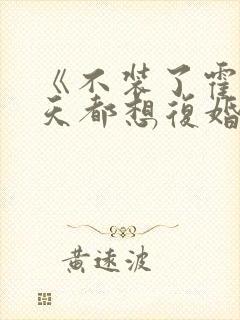 《不装了霍
天都想復婚
黄遠波